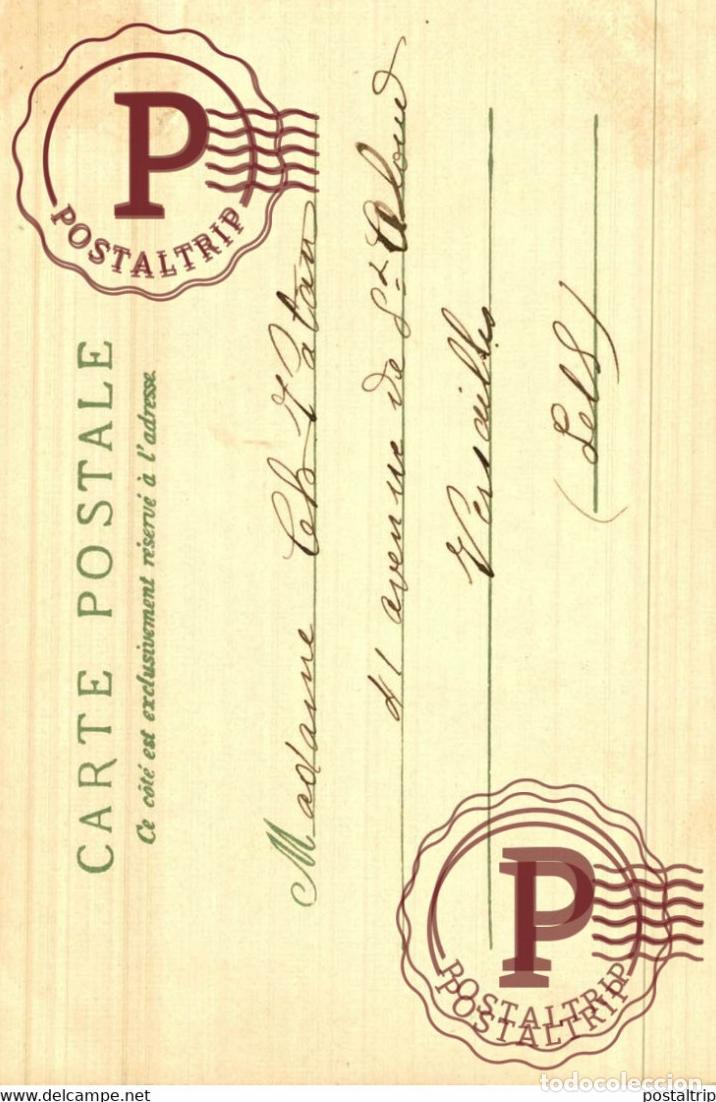 CARTE POSTALE
Ce côté est exclusivement réservé à l'adresse.
Madame Ch
avenue de St Cloud
Versailles
P
POSTALTRIP
P
POSTALTRIP
POSTALTRIP
todocoleccion
www.delcampe.net
postaltrip